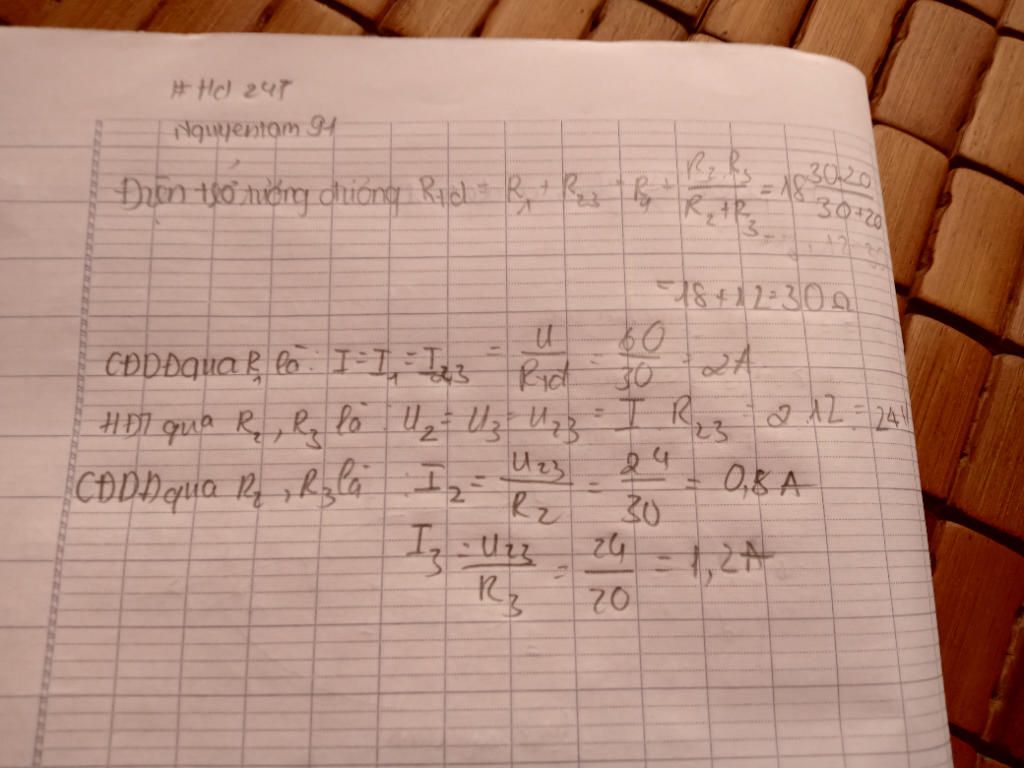 # Hd 247
Nguyentam 91
Điện trở tương đương Rtđ = R₁ + R₂₃ = R₁ + R₂.R₃/R₂+R₃ = 18 30.20/30+20
= 18 + 12 = 30 Ω
CĐDĐ qua R₁ là : I = I₁ = I₂₃ = U/Rtđ = 60/30 = 2A
HĐT qua R₂, R₃ là : U₂ = U₃ = U₂₃ = I R₂₃ = 2.12 = 24V
CĐDĐ qua R₂, R₃ là : I₂ = U₂₃/R₂ = 24/30 = 0,8 A
I₃ = U₂₃/R₃ = 24/20 = 1,2A